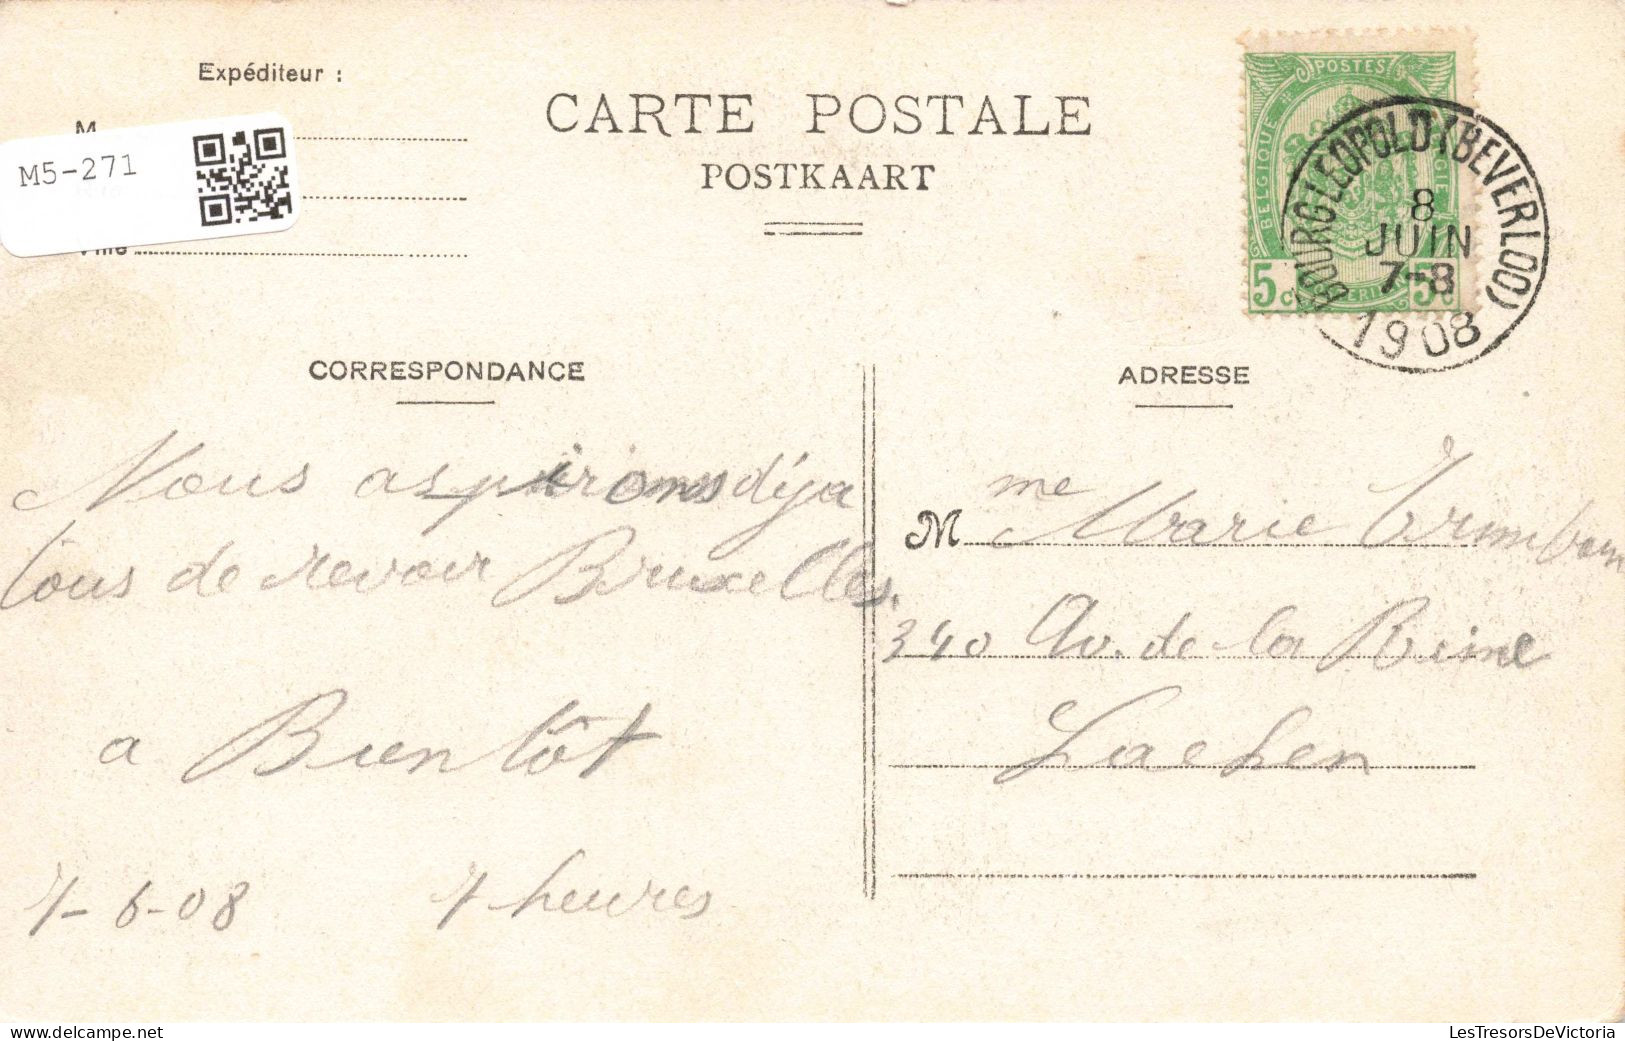 Expéditeur :
M
M5-271
Ville
CARTE POSTALE
POSTKAART
POSTES
BELGIQUE
5 c 5 c
BOURG LEOPOLD (BEVERLOO)
8
JUIN
7-8
1908
CORRESPONDANCE
Nous aspirions déja
tous de revoir Bruxelles.
a Bientôt
7-6-08 7 heures
ADRESSE
Mme Marie
340 Av. de la Reine
Laeken
LesTresorsDeVictoria
www.delcampe.net